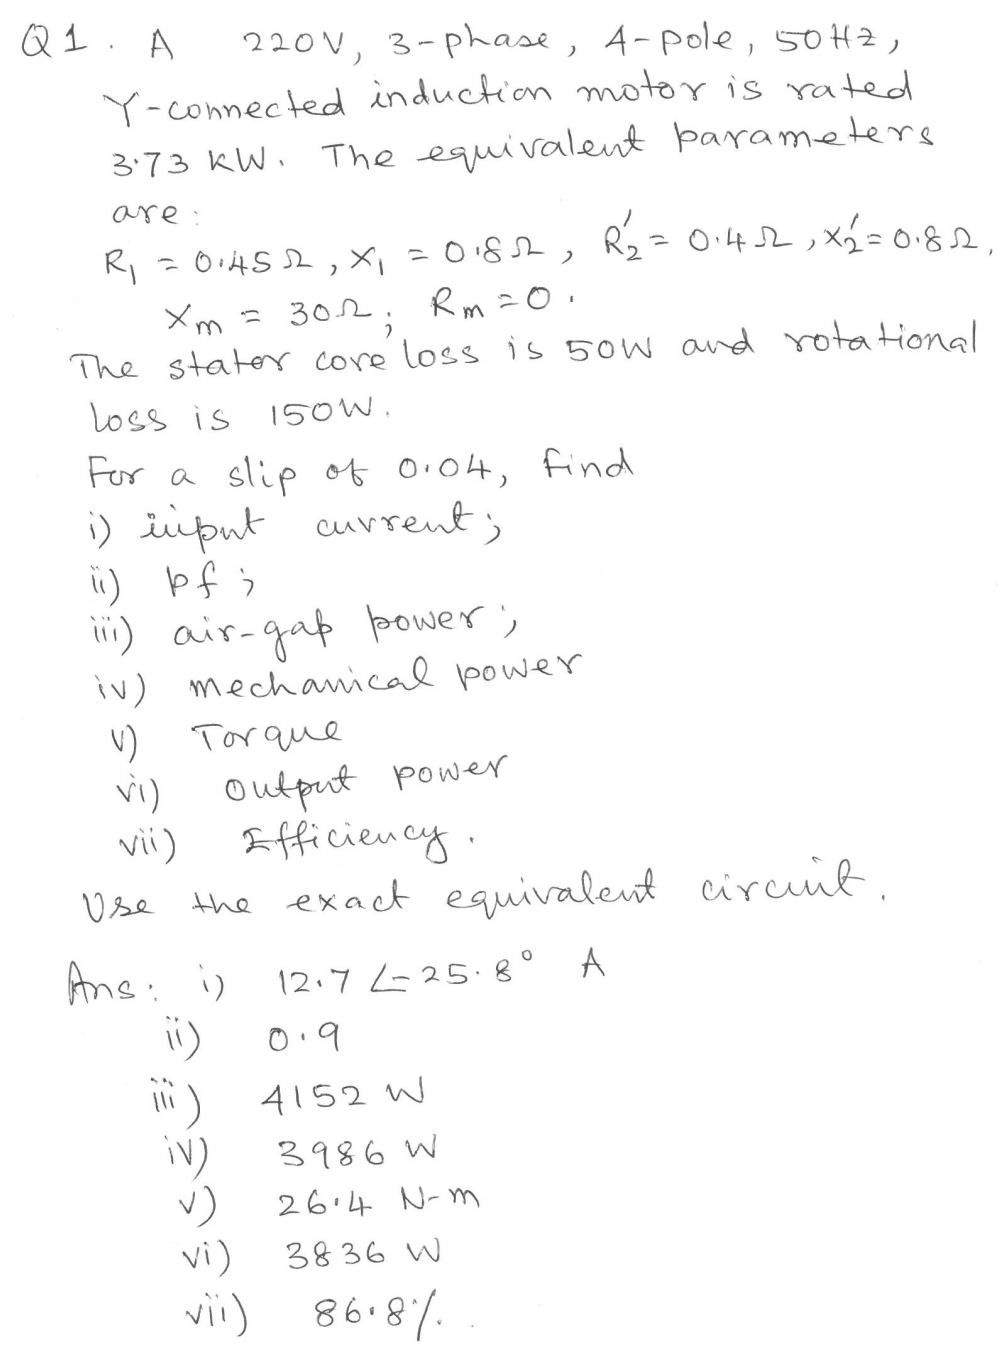 Q1. A 220V, 3-phase, 4-pole, 50Hz,
Y-connected induction motor is rated
3.73 kW. The equivalent parameters
are:
R₁ = 0.45Ω, X₁ = 0.8Ω, R₂′ = 0.4Ω, X₂′ = 0.8Ω,
Xm = 30Ω; Rm = 0.
The stator core loss is 50W and rotational
loss is 150W.
For a slip of 0.04, find
i) input current;
ii) pf;
iii) air-gap power;
iv) mechanical power
v) Torque
vi) output power
vii) Efficiency.
Use the exact equivalent circuit.
Ans: i) 12.7 ∠-25.8° A
ii) 0.9
iii) 4152 W
iv) 3986 W
v) 26.4 N-m
vi) 3836 W
vii) 86.8%.